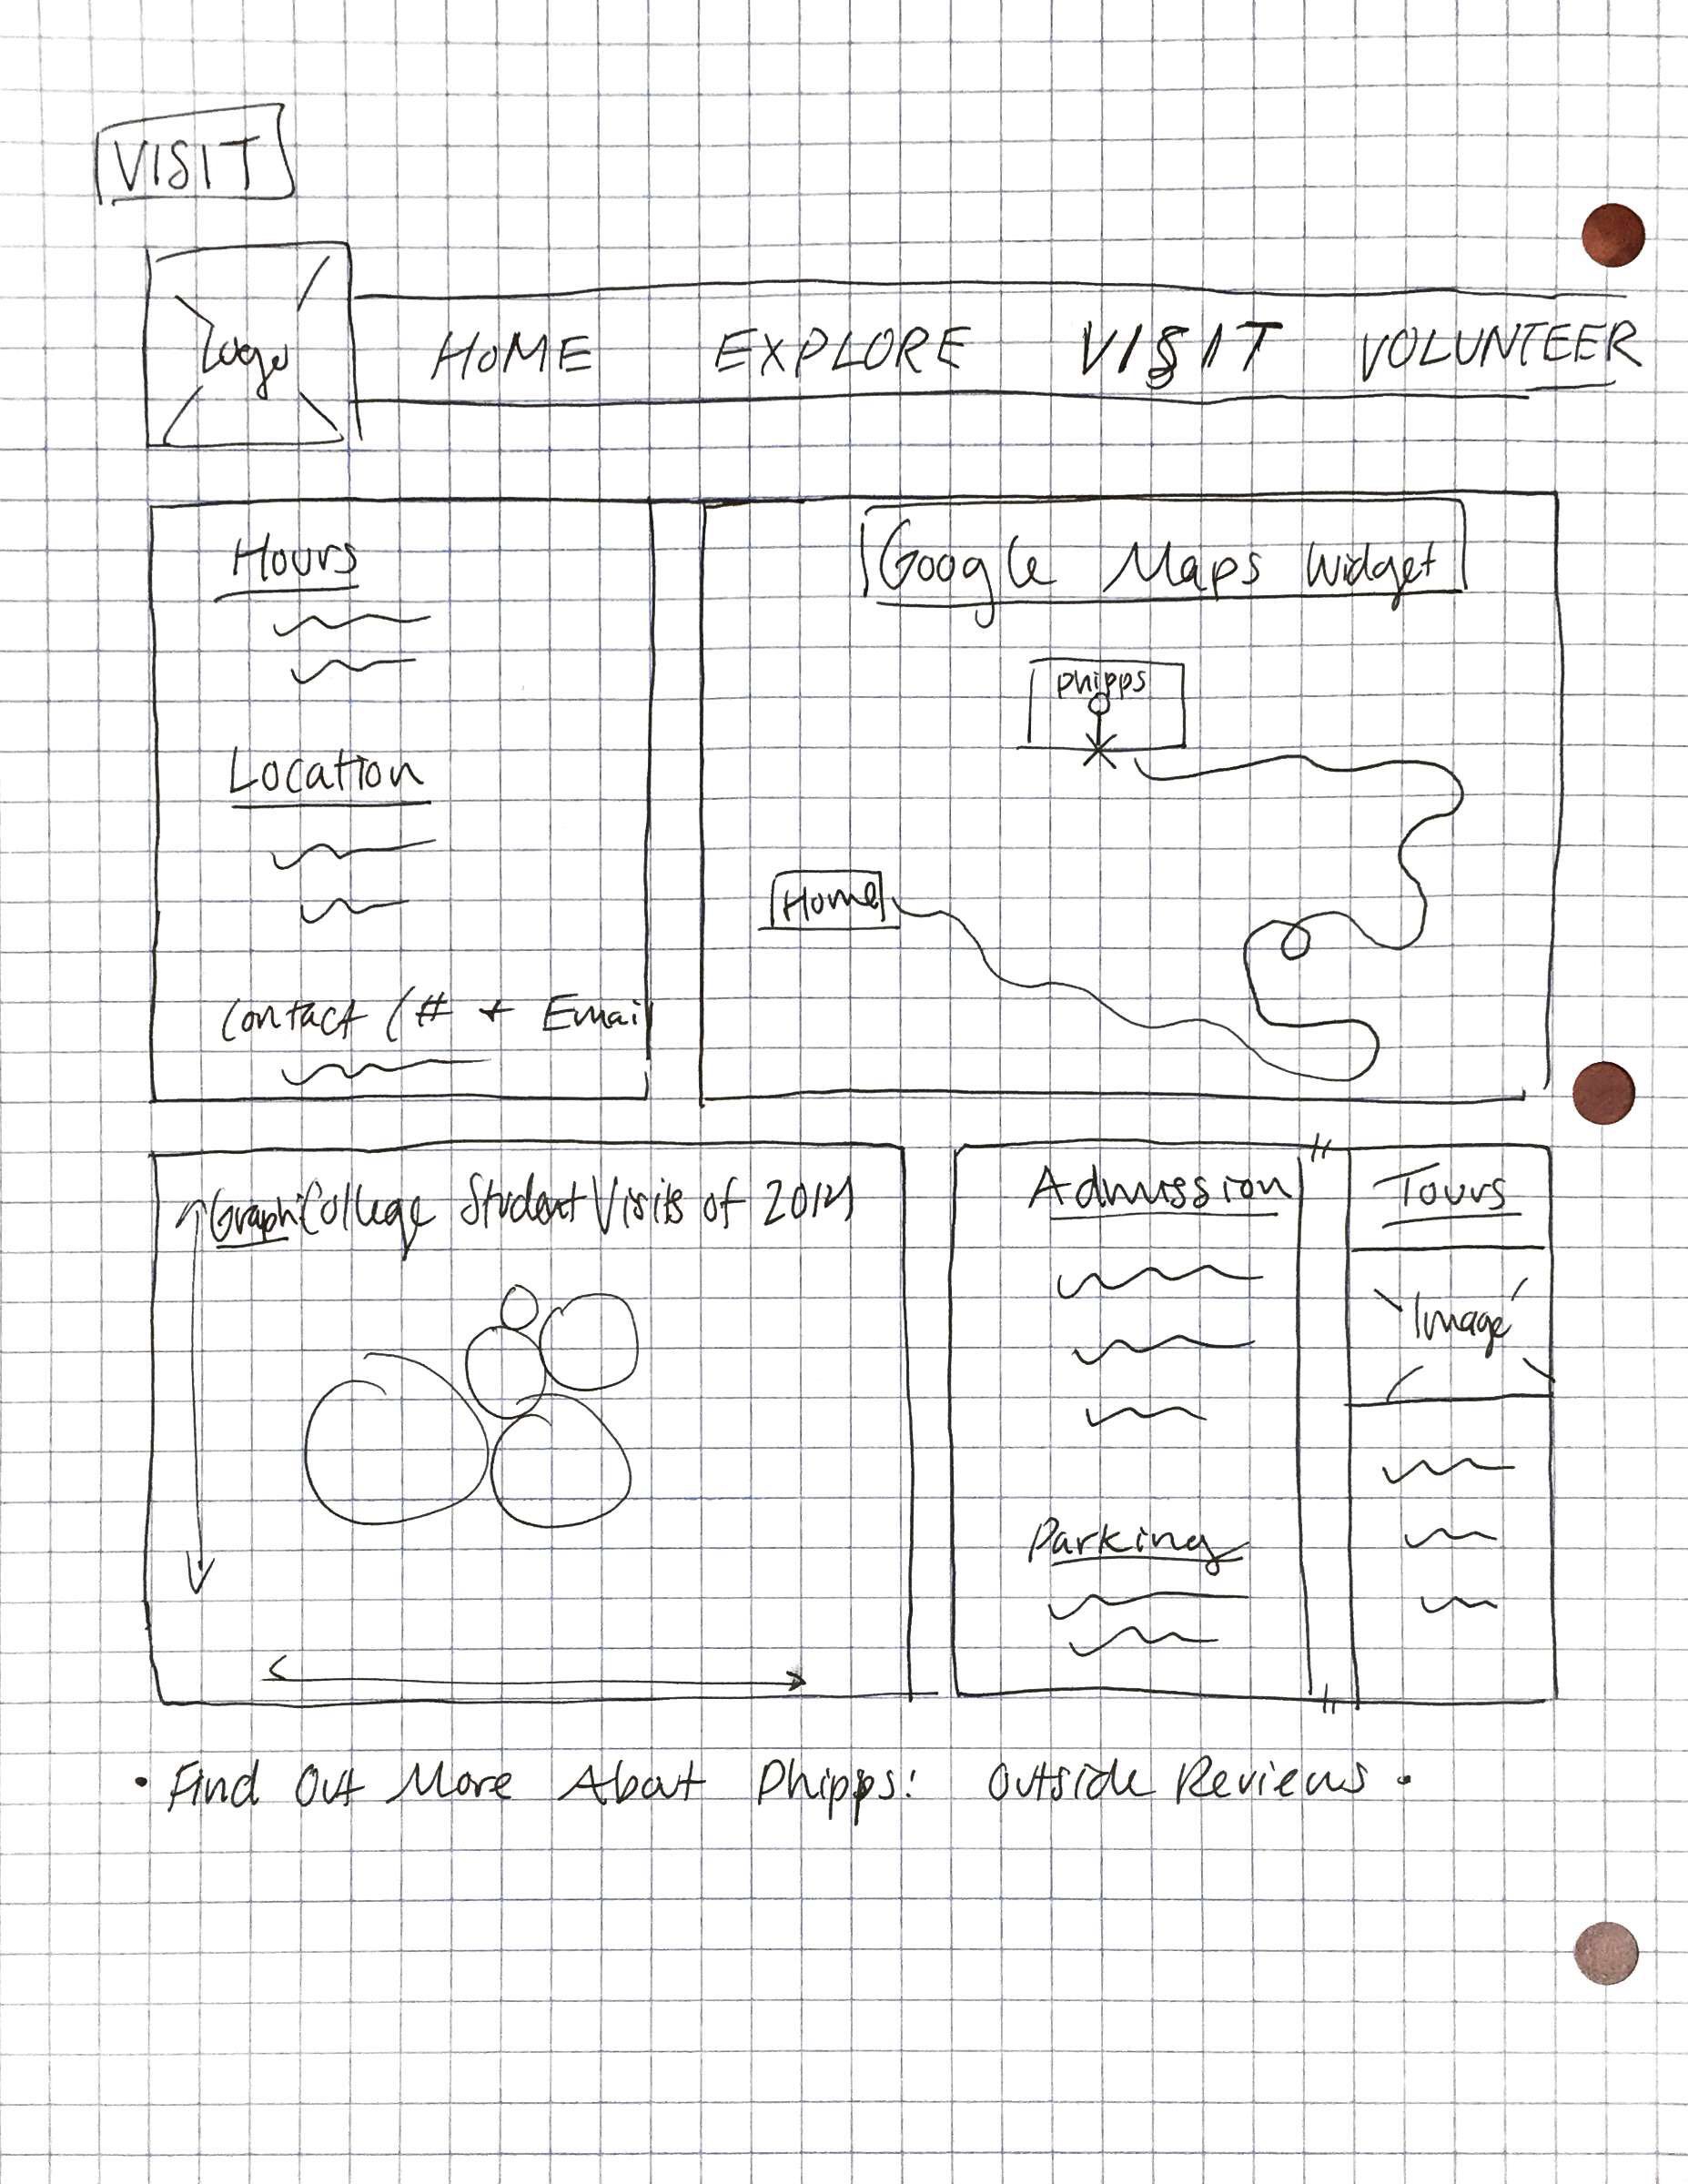 VISIT
Logo
HOME EXPLORE VISIT VOLUNTEER
Hours
Location
Contact (# + Email
Google Maps Widget
Phipps
Home
Graph College Student Visits of 2014
Admission
Parking
Tours
Image
• Find Out More About Phipps: Outside Reviews •